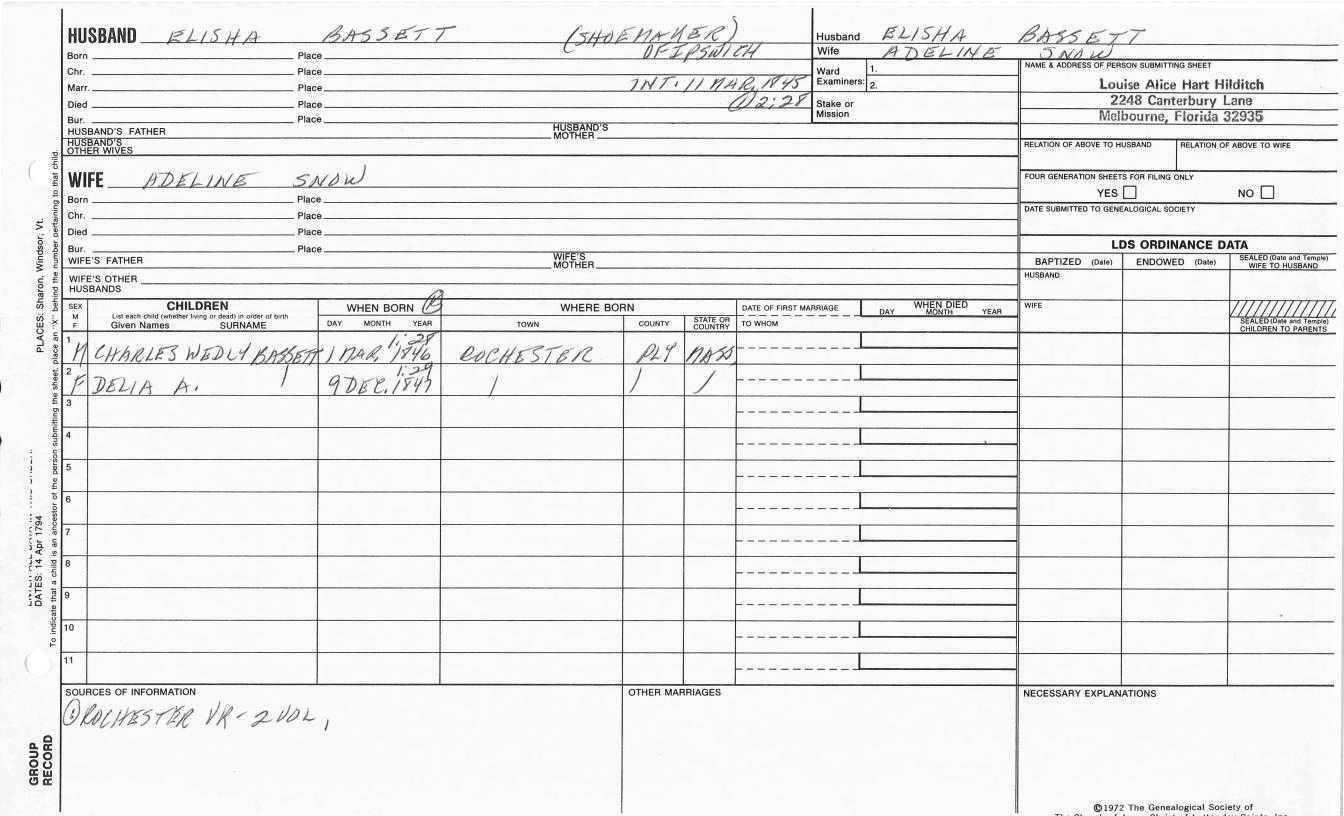 HUSBAND ELISHA BASSETT (SHOEMAKER)
OF IPSWICH
Born Place
Chr. Place
Marr. Place INT. 11 MAR, 1845
Died Place ① 2:28
Bur. Place
HUSBAND'S FATHER HUSBAND'S MOTHER
HUSBAND'S OTHER WIVES
Husband ELISHA BASSETT
Wife ADELINE SNOW
Ward Examiners: 1.
2.
Stake or Mission
NAME & ADDRESS OF PERSON SUBMITTING SHEET
Louise Alice Hart Hilditch
2248 Canterbury Lane
Melbourne, Florida 32935
RELATION OF ABOVE TO HUSBAND RELATION OF ABOVE TO WIFE
FOUR GENERATION SHEETS FOR FILING ONLY
YES NO
DATE SUBMITTED TO GENEALOGICAL SOCIETY
WIFE ADELINE SNOW
Born Place
Chr. Place
Died Place
Bur. Place
WIFE'S FATHER WIFE'S MOTHER
WIFE'S OTHER HUSBANDS
LDS ORDINANCE DATA
BAPTIZED (Date) ENDOWED (Date) SEALED (Date and Temple) WIFE TO HUSBAND
HUSBAND
WIFE
SEALED (Date and Temple) CHILDREN TO PARENTS
SEX M F
CHILDREN
List each child (whether living or dead) in order of birth
Given Names SURNAME
WHEN BORN
DAY MONTH YEAR
WHERE BORN
TOWN COUNTY STATE OR COUNTRY
DATE OF FIRST MARRIAGE
TO WHOM
WHEN DIED
DAY MONTH YEAR
1:28
1 M CHARLES WEDLY BASSETT 1 MAR, 1846 ROCHESTER PLY MASS
1:29
2 F DELIA A. 9 DEC. 1847
3
4
5
6
7
8
9
10
11
SOURCES OF INFORMATION
① ROCHESTER VR - 2 VOL,
OTHER MARRIAGES
NECESSARY EXPLANATIONS
©1972 The Genealogical Society of
PLACES: Sharon, Windsor, Vt.
DATES: 14 Apr 1794
To indicate that a child is an ancestor of the person submitting the sheet, place an "X" behind the number pertaining to that child.
GROUP RECORD